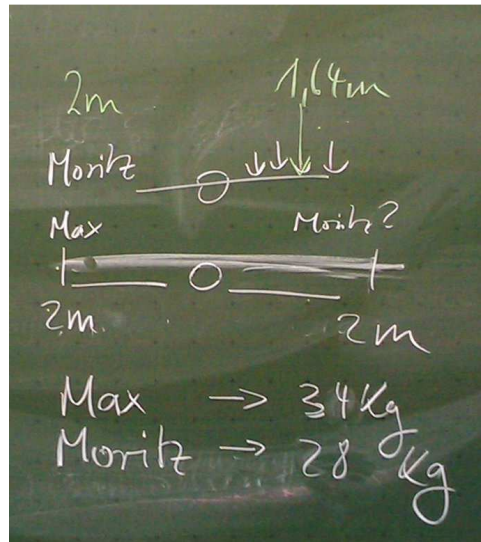 2m 1,64m
Moritz
Max Moritz?
2m 2m
Max → 34Kg
Moritz → 28 Kg